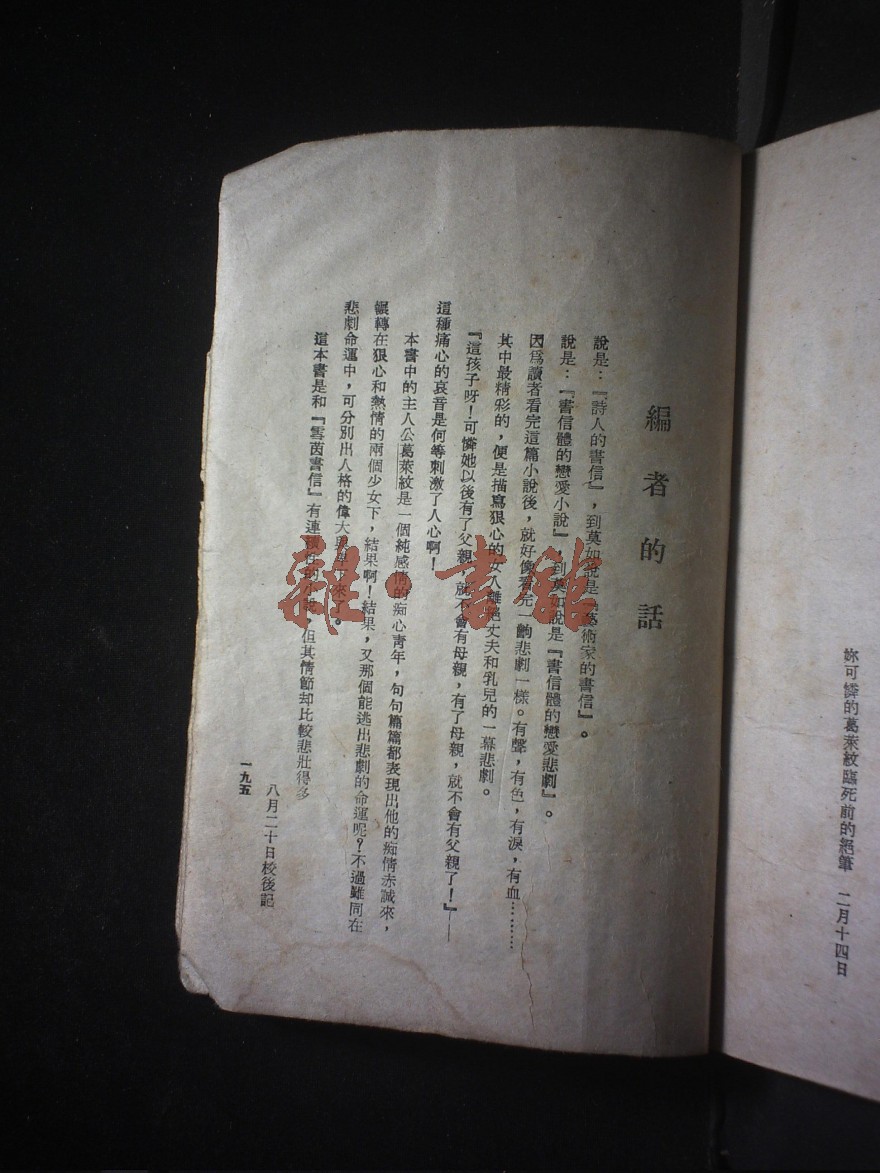 妳可憐的葛萊紋臨死前的絕筆 二月十四日
編者的話
說是：『詩人的書信』，到莫如說是『藝術家的書信』。
說是：『書信體的戀愛小說』，到莫如說是『書信體的戀愛悲劇』。
因爲讀者看完這篇小說後，就好像看完一齣悲劇一樣。有聲，有色，有淚，有血………
其中最精彩的，便是描寫狠心的女人離絕丈夫和乳兒的一幕悲劇。
『這孩子呀！可憐她以後有了父親，就不會有母親，有了母親，就不會有父親了！』——
這種痛心的哀音是何等刺激了人心啊！
本書中的主人公葛萊紋是一個純感情的痴心青年，句句篇篇都表現出他的痴情赤誠來，
輾轉在狠心和熱情的兩個少女下，結果啊！結果，又那個能逃出悲劇的命運呢？不過雖同在
悲劇命運中，可分別出人格的偉大與卑下來了。
這本書是和『雪茵書信』有連續性的小說，但其情節却比較悲壯得多
八月二十日校後記
一九五
雜·書館